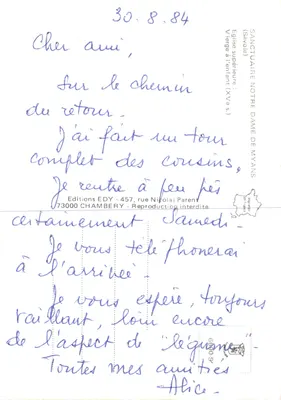 30.8.84
Cher ami,
Sur le chemin
du retour.
J'ai fait un tour
complet des cousins.
Je rentre à peu près
certainement Samedi.
Je vous téléphonerai
à l'arrivée.
Je vous espère, toujours
vaillant, loin encore
de l'aspect de "légume".
Toutes mes amitiés
Alice.
SANCTUAIRE NOTRE DAME DE MYANS
(Savoie)
Eglise supérieure
Vierge à l'enfant (XVe s.)
Editions EDY - 457, rue Nicolas Parent
73000 CHAMBERY - Reproduction interdite